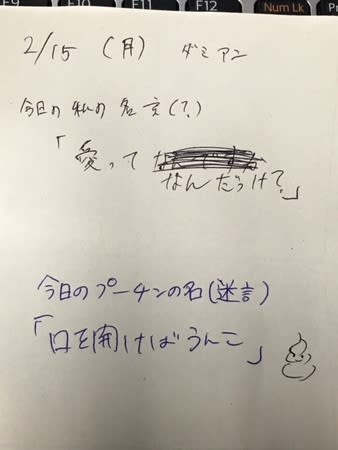 F9 F10 F11 F12 Num Lk Pr
2/15 (月) ダミアン
今日の私の名言(?)
「愛って
なんだっけ?」
今日のプーチンの名(迷言)
「口を開けばうんこ」